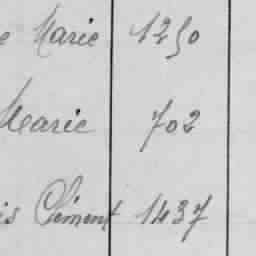 e Marie 1250
Marie 702
is Clément 1437